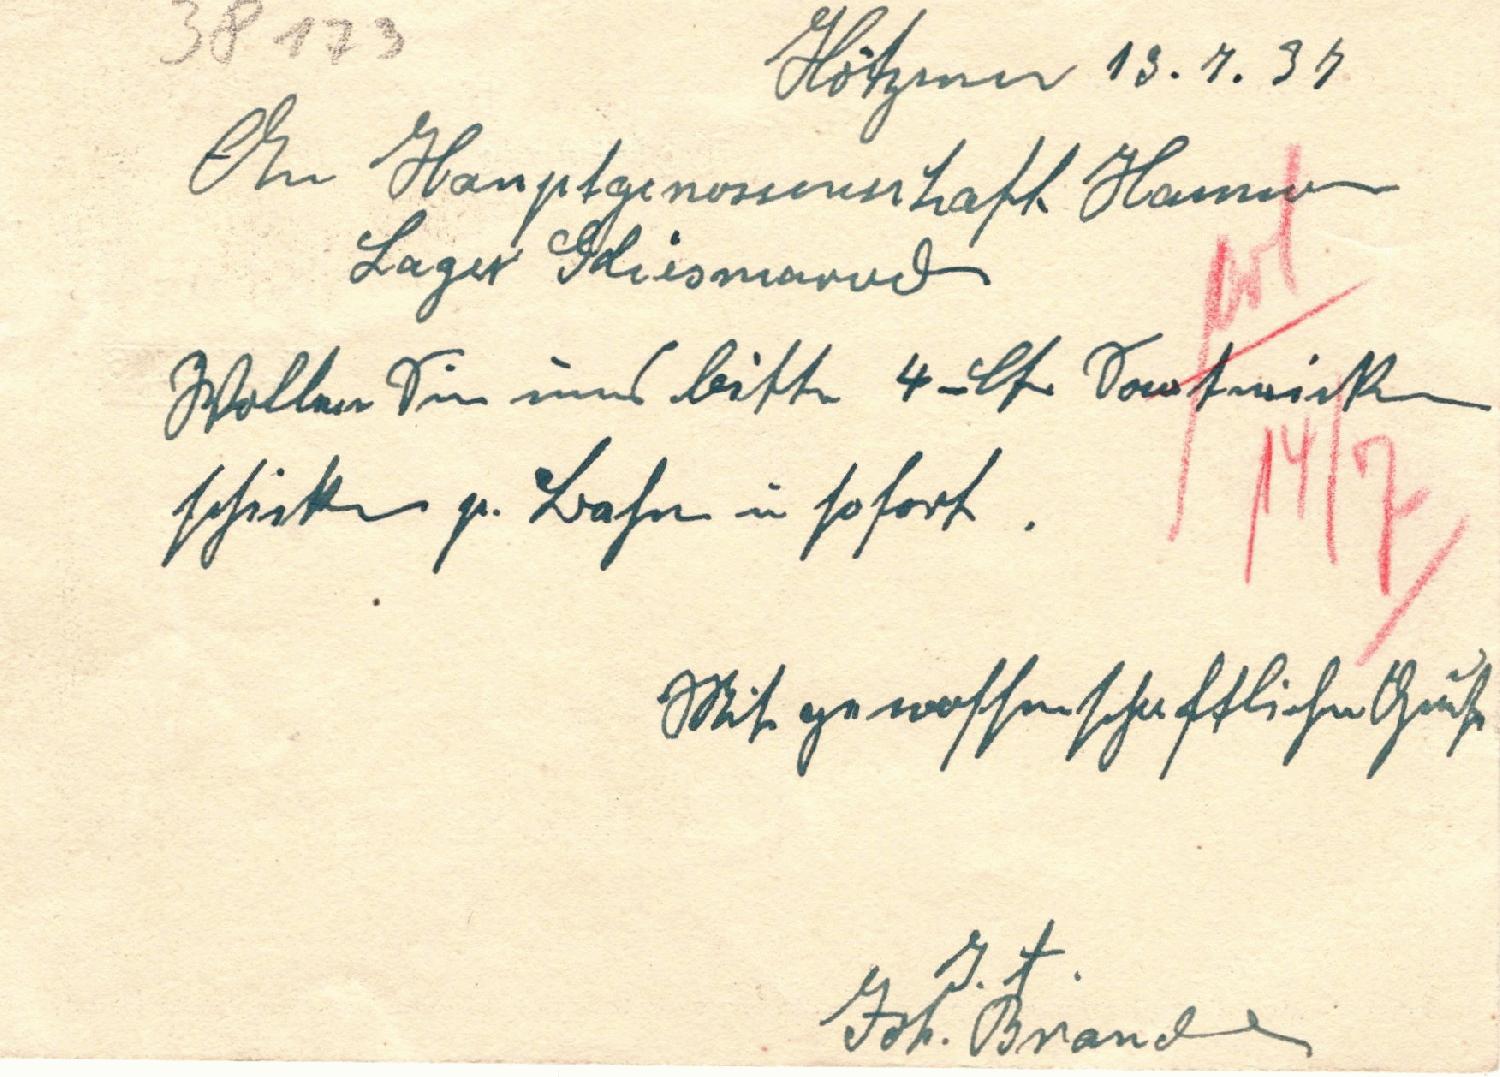 38 173
Hötzum 13.7.37
An Hauptgenossenschaft Hannov
Lager Gliesmarode
Wollen Sie uns bitte 4 Saatwicken
schicken p. Bahn u sofort.
14/7
Mit genossenschaftlichen Gruß
J.A.
Joh. Brandes